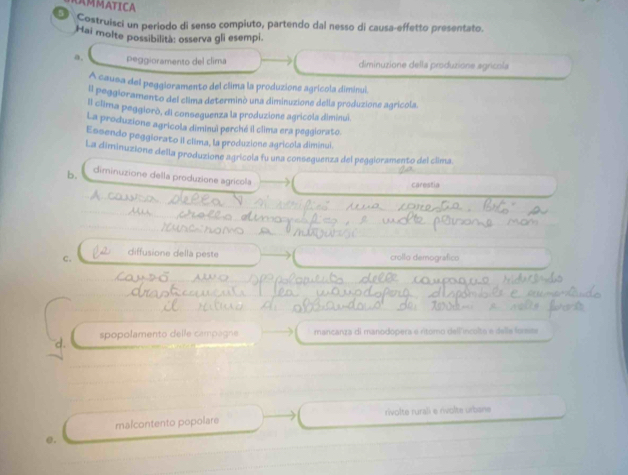 GRAMMATICA
Costruisci un periodo di senso compiuto, partendo dal nesso di causa-effetto presentato.
Hai molte possibilità: osserva gli esempi.
a. peggioramento del clima diminuzione della produzione agricola
A causa del peggioramento del clima la produzione agricola diminuì.
Il peggioramento del clima determinò una diminuzione della produzione agricola.
Il clima peggiorò, di conseguenza la produzione agricola diminuì.
La produzione agricola diminuì perché il clima era peggiorato.
Essendo peggiorato il clima, la produzione agricola diminuì.
La diminuzione della produzione agricola fu una conseguenza del peggioramento del clima.
b. diminuzione della produzione agricola carestia
A causa della si verificò una carestia.
un crollo demografico, e molte persone non
a
c. diffusione della peste crollo demografico
causò uno spopolamento delle campagne riducendo
drasticamente la manodopera disponibile e
il di dei terreni e
d. spopolamento delle campagne mancanza di manodopera e ritorno dell'incolto e delle foreste
e. malcontento popolare rivolte rurali e rivolte urbane